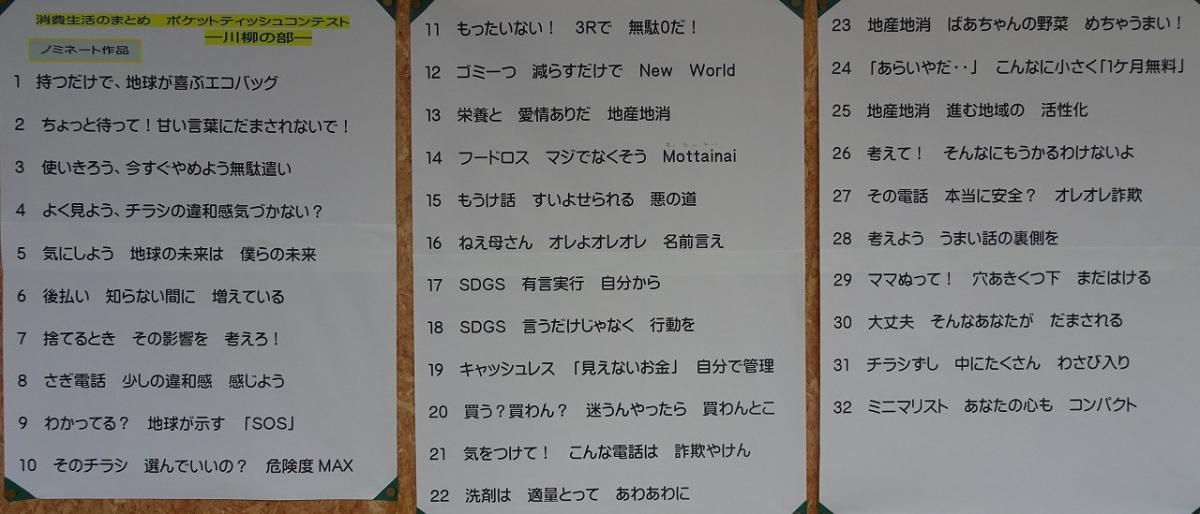 消費生活のまとめ　ポケットティッシュコンテスト
―川柳の部―
ノミネート作品
1　持つだけで、地球が喜ぶエコバッグ
2　ちょっと待って！甘い言葉にだまされないで！
3　使いきろう、今すぐやめよう無駄遣い
4　よく見よう、チラシの違和感気づかない？
5　気にしよう　地球の未来は　僕らの未来
6　後払い　知らない間に　増えている
7　捨てるとき　その影響を　考えろ！
8　さぎ電話　少しの違和感　感じよう
9　わかってる？　地球が示す　「SOS」
10　そのチラシ　選んでいいの？　危険度MAX
11　もったいない！　3Rで　無駄0だ！
12　ゴミ一つ　減らすだけで　New　World
13　栄養と　愛情ありだ　地産地消
14　フードロス　マジでなくそう　Mottainai
15　もうけ話　すいよせられる　悪の道
16　ねえ母さん　オレよオレオレ　名前言え
17　SDGS　有言実行　自分から
18　SDGS　言うだけじゃなく　行動を
19　キャッシュレス　「見えないお金」　自分で管理
20　買う？買わん？　迷うんやったら　買わんとこ
21　気をつけて！　こんな電話は　詐欺やけん
22　洗剤は　適量とって　あわあわに
23　地産地消　ばあちゃんの野菜　めちゃうまい！
24　「あらいやだ‥」　こんなに小さく「1ケ月無料」
25　地産地消　進む地域の　活性化
26　考えて！　そんなにもうかるわけないよ
27　その電話　本当に安全？　オレオレ詐欺
28　考えよう　うまい話の裏側を
29　ママぬって！　穴あきくつ下　まだはける
30　大丈夫　そんなあなたが　だまされる
31　チラシずし　中にたくさん　わさび入り
32　ミニマリスト　あなたの心も　コンパクト